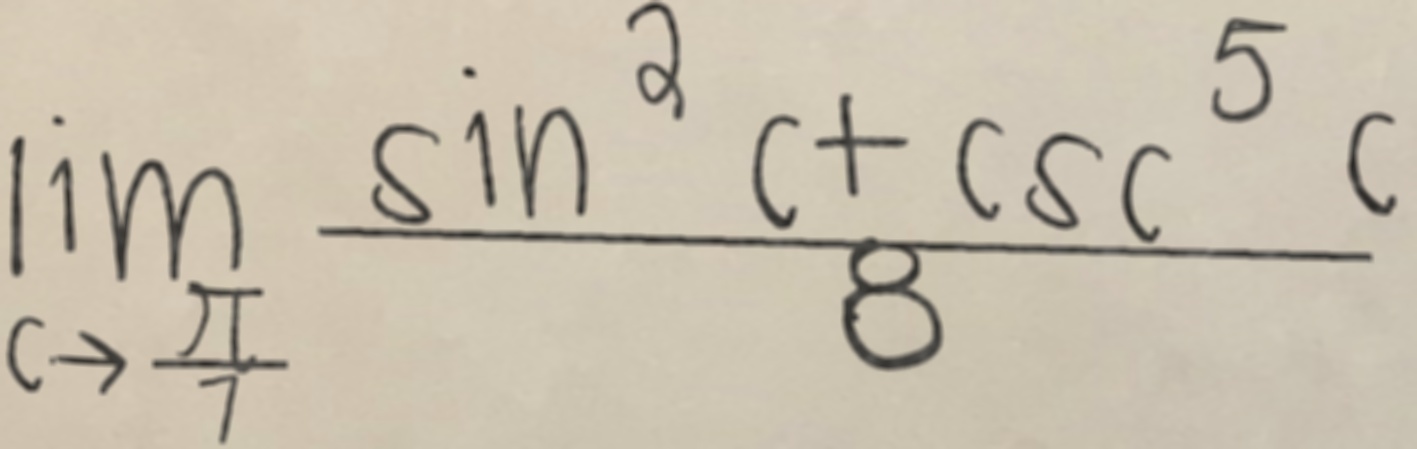 \lim_{c \to \frac{\pi}{7}} \frac{\sin^2 c + \csc^5 c}{8}